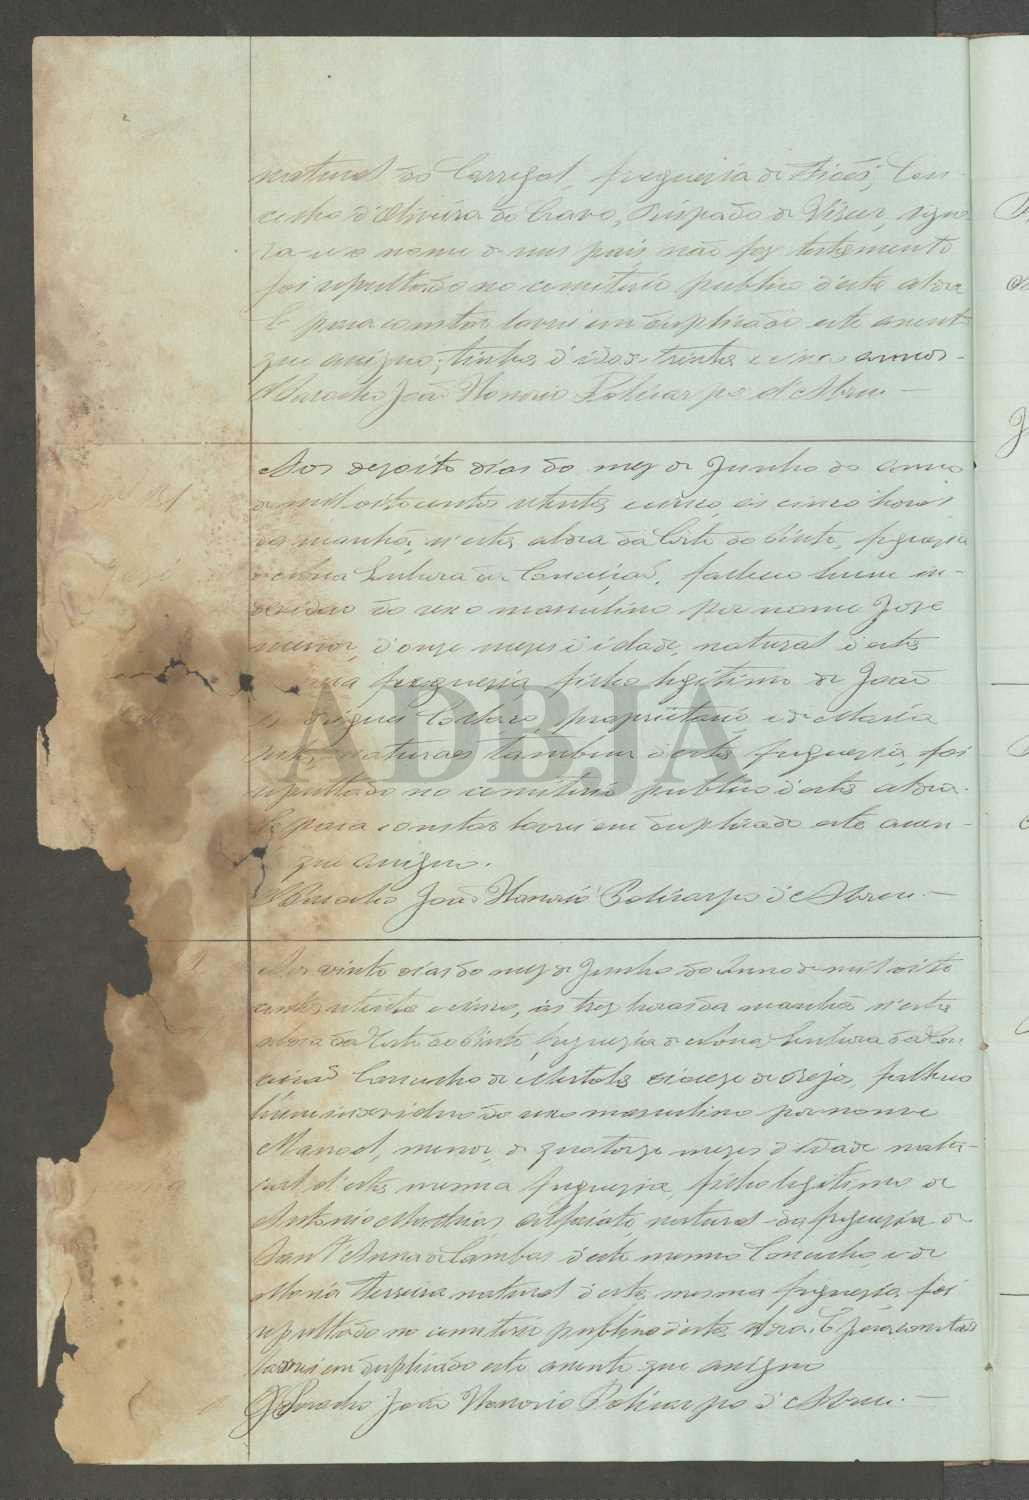 natural do Carregal, freguesia de Fiaes, Con-
celho d'Oliveira do Cravo, Bispado de Viseu, igno-
ra-se o nome de seus pais, não fez testamento
foi sepultado no cemiterio publico d'esta aldea
E para constar lavrei em duplicado este assent
que assigno; tinha d'idade trinta e cinco annos -
O Parocho João Honorio Policarpo d'Abreu -
Aos desoito dias do mez de Junho do anno
de mil oitocentos setenta e cinco, ás cinco horas
da manhã, n'esta aldea da Corte do Pinto, freguesia
de Nossa Senhora da Conceição, falleceu hum in-
dividuo do sexo masculino por nome José
menor, d'onze mezes d'idade, natural d'esta
freguesia, filho legitimo de João
Collaço, proprietario e de Maria
naturaes tambem d'esta freguesia, foi
sepultado no cemiterio publico d'esta aldea.
E para constar lavrei em duplicado este assen-
que assigno.
O Parocho João Honorio Policarpo d'Abreu. -
Aos vinte dias do mez de Junho do Anno de mil oito
centos setenta e cinco, ás trez horas da manhã n'esta
aldea da Corte do Pinto, freguesia de Nossa Senhora da Con
ceição Concelho de Mertola diocese de Beja, falleceu
hum individuo do sexo masculino por nome
Manoel, menor, de quatorze mezes d'idade natu-
ral d'esta mesma freguesia, filho legitimo de
Antonio Mathias, Alfaiate, natural da freguesia de
Sant'Anna de Cambas d'este mesmo Concelho, e de
Maria Ferreira natural d'esta mesma freguesia, foi
sepultado no cemiterio publico d'esta aldea. E para constar
lavrei em duplicado este assento que assigno
O Parocho João Honorio Policarpo d'Abreu. -
ADBJA